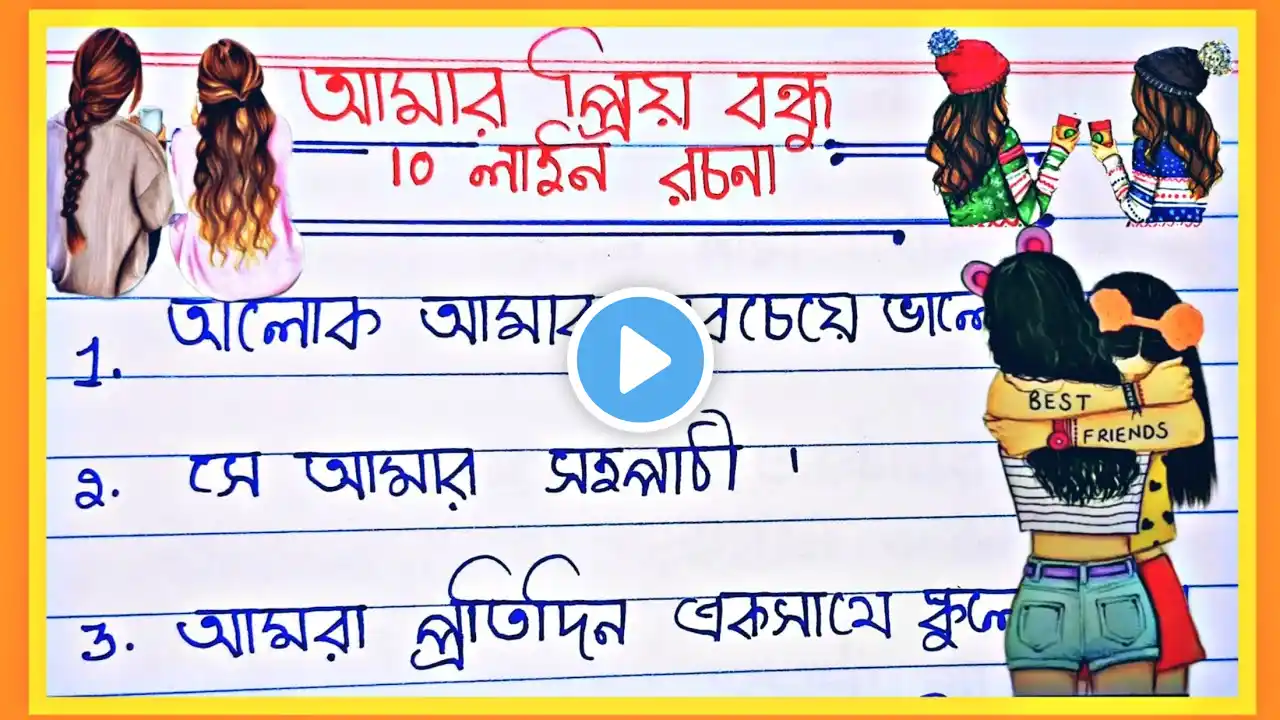 আমার প্রিয় বন্ধু
10 লাইন রচনা
1. আলোক আমার
2. সে আমার সহপাঠী ।
3. আমরা প্রতিদিন একসাথে
BEST
FRIENDS